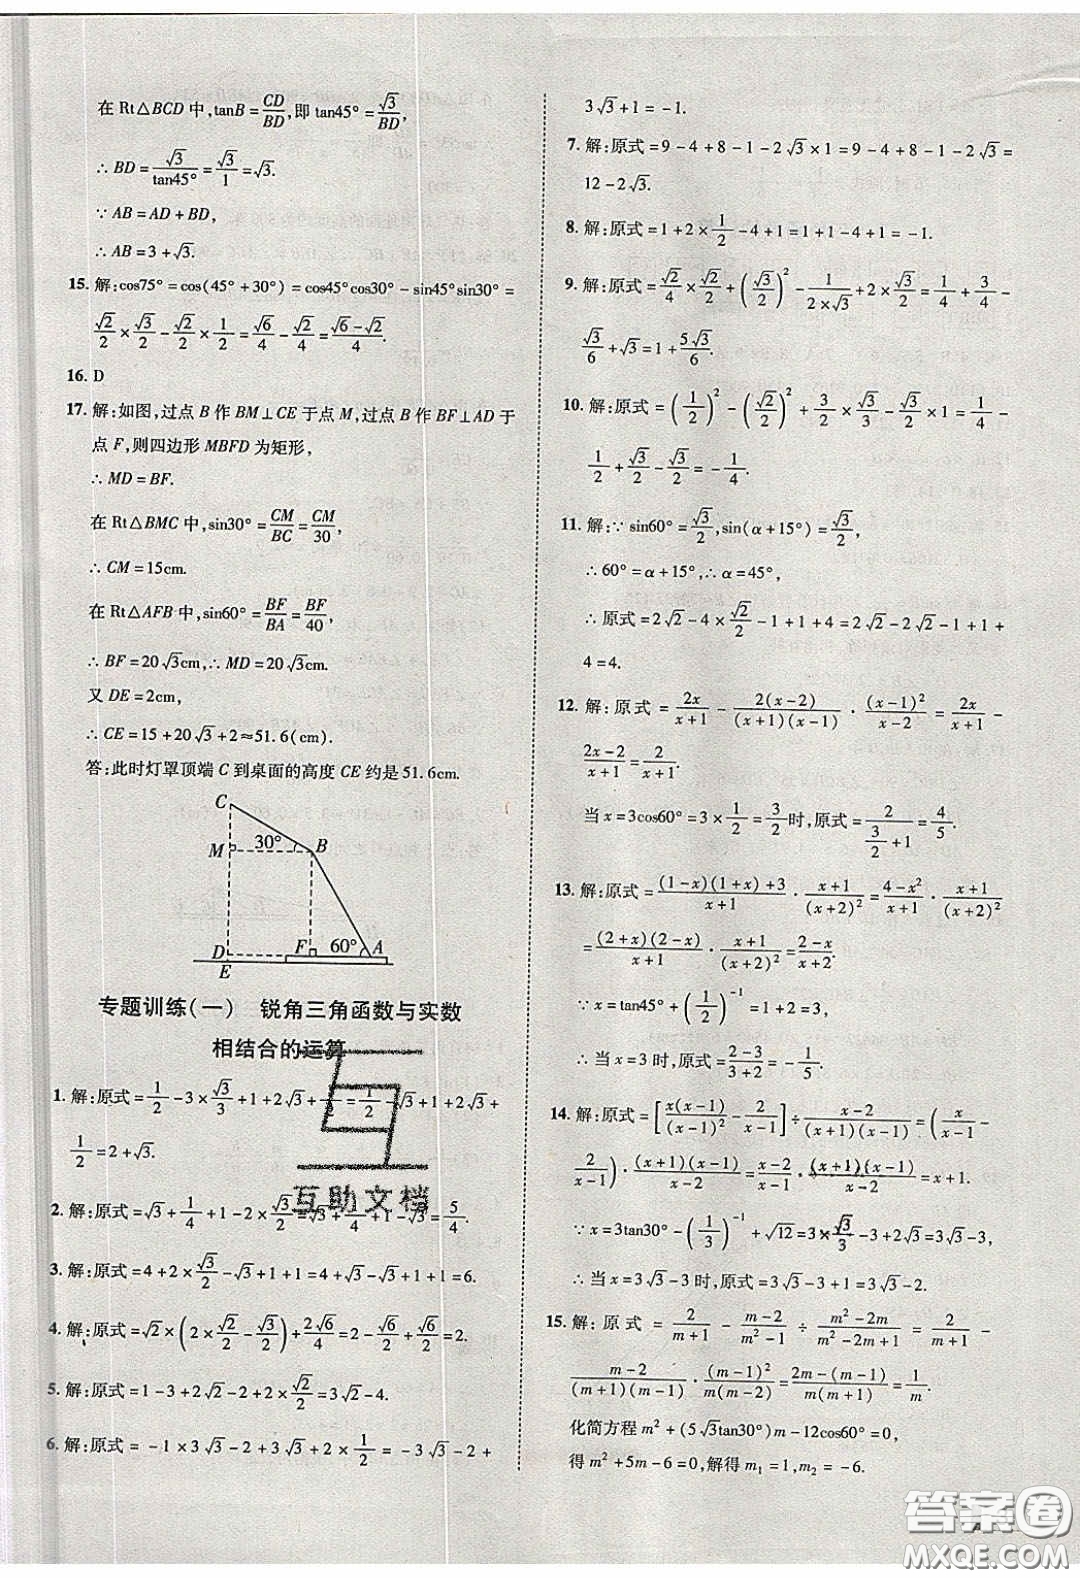 在 Rt△BCD 中,tanB=CD/BD,即 tan45°=√3/BD,
∴BD=√3/tan45°=√3/1=√3.
∵AB=AD+BD,
∴AB=3+√3.
15. 解:cos75°=cos(45°+30°)=cos45°cos30°-sin45°sin30°=
√2/2×√3/2-√2/2×1/2=√6/4-√2/4=(√6-√2)/4.
16. D
17. 解:如图,过点 B 作 BM⊥CE 于点 M,过点 B 作 BF⊥AD 于
点 F,则四边形 MBFD 为矩形,
∴MD=BF.
在 Rt△BMC 中,sin30°=CM/BC=CM/30,
∴CM=15cm.
在 Rt△AFB 中,sin60°=BF/BA=BF/40,
∴BF=20√3cm,∴MD=20√3cm.
又 DE=2cm,
∴CE=15+20√3+2≈51.6(cm).
答:此时灯罩顶端 C 到桌面的高度 CE 约是51.6cm.
C
M 30° B
D F 60° A
E
专题训练(一) 锐角三角函数与实数
相结合的运算
1. 解:原式=1/2-3×√3/3+1+2√3+1/2=1/2-√3+1+2√3+
1/2=2+√3.
互助文档
2. 解:原式=√3+1/4+1-2×√3/2=√3+1/4+1-√3=5/4.
3. 解:原式=4+2×√3/2-√3+1+1=4+√3-√3+1+1=6.
4. 解:原式=√2×(2×√2/2-√3/2)+2√6/4=2-√6/2+√6/2=2.
5. 解:原式=1-3+2√2-2+2×√2/2=3√2-4.
6. 解:原式=-1×3√3-2+3√3+2×1/2=-3√3-2+
3√3+1=-1.
7. 解:原式=9-4+8-1-2√3×1=9-4+8-1-2√3=
12-2√3.
8. 解:原式=1+2×1/2-4+1=1+1-4+1=-1.
9. 解:原式=√2/4×√2/2+(√3/2)²-1/(2×√3)+2×√3/2=1/4+3/4-
√3/6+√3=1+5√3/6.
10. 解:原式=(1/2)²-(√2/2)²+3/2×√3/3-√3/2×1=1/4-
1/2+√3/2-√3/2=-1/4.
11. 解:∵sin60°=√3/2,sin(α+15°)=√3/2,
∴60°=α+15°,∴α=45°,
∴原式=2√2-4×√2/2-1+1+4=2√2-2√2-1+1+
4=4.
12. 解:原式=2x/(x+1)-2(x-2)/((x+1)(x-1))·(x-1)²/(x-2)=2x/(x+1)-
(2x-2)/(x+1)=2/(x+1).
当 x=3cos60°=3×1/2=3/2时,原式=2/(3/2+1)=4/5.
13. 解:原式=((1-x)(1+x)+3)/(x+1)·(x+1)/(x+2)²=(4-x²)/(x+1)·(x+1)/(x+2)²
=(2+x)(2-x)/(x+1)·(x+1)/(x+2)²=(2-x)/(x+2).
∵x=tan45°+(1/2)⁻¹=1+2=3,
∴当 x=3时,原式=(2-3)/(3+2)=-1/5.
14. 解:原式=[x(x-1)/(x-1)²-2/(x-1)]÷(x-2)/((x+1)(x-1))=(x/(x-1)-
2/(x-1))·(x+1)(x-1)/(x-2)=(x-2)/(x-1)·(x+1)(x-1)/(x-2)=x+1,
∵x=3tan30°-(1/3)⁻¹+√12=3×√3/3-3+2√3=3√3-3,
∴当 x=3√3-3时,原式=3√3-3+1=3√3-2.
15. 解:原式=2/(m+1)-(m-2)/(m²-1)÷(m²-2m)/(m²-2m+1)=2/(m+1)-
(m-2)/((m+1)(m-1))·(m-1)²/(m(m-2))=(2m-(m-1))/(m(m+1))=1/m.
化简方程 m²+(5√3tan30°)m-12cos60°=0,
得 m²+5m-6=0,解得 m₁=1,m₂=-6.
答案圈
MXQE.COM